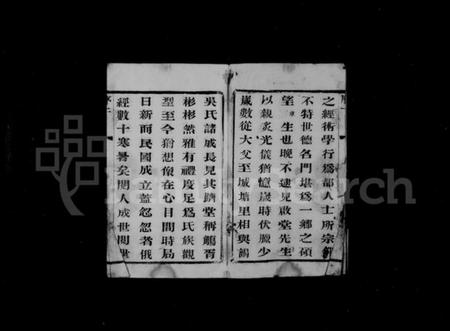 之經術學行爲都人士所宗
不特世德名門堪爲一鄉之碩
望 生也晚不逮見啟堂先生
以親炙光儀猶憶歲時伏臘少
歲數從大父至城塘里相與
吳氏諸戚長見其躋堂稱觥
彬彬然雅有禮度足爲氏族觀
型至今猶想像在心目間時局
日新而民國成立藍忽忽者俄
經數十寒暑矣閱人成世閱